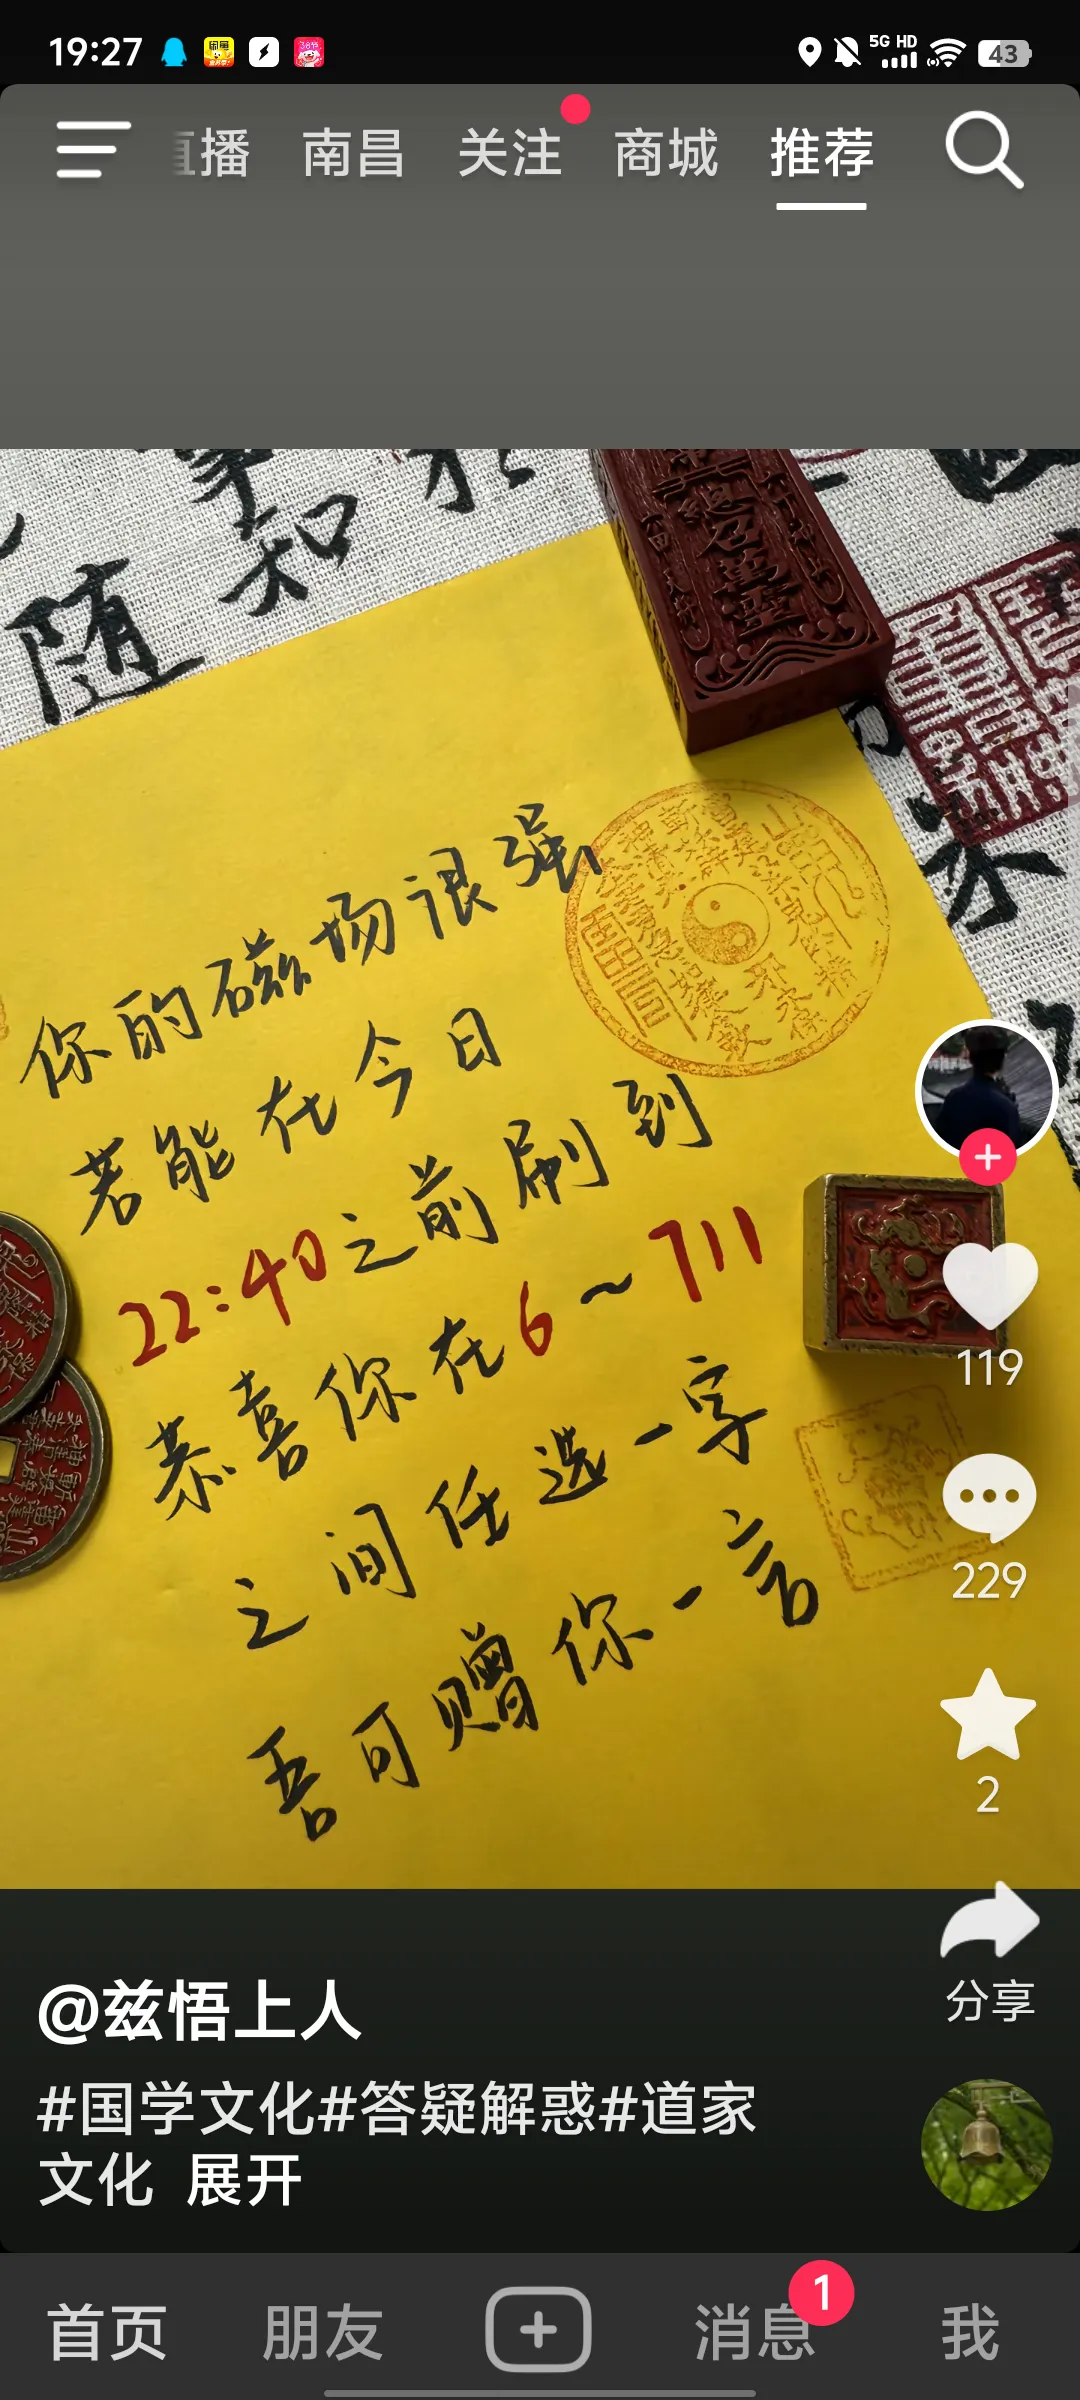 19:27
5G HD
43
直播 南昌 关注 商城 推荐
随
知
你的磁场很强
若能在今日
22:40之前刷到
恭喜你在6~711
之间任选一字
吾可赠你一言
119
229
2
分享
@兹悟上人
#国学文化#答疑解惑#道家
文化 展开
首页 朋友 消息 1 我